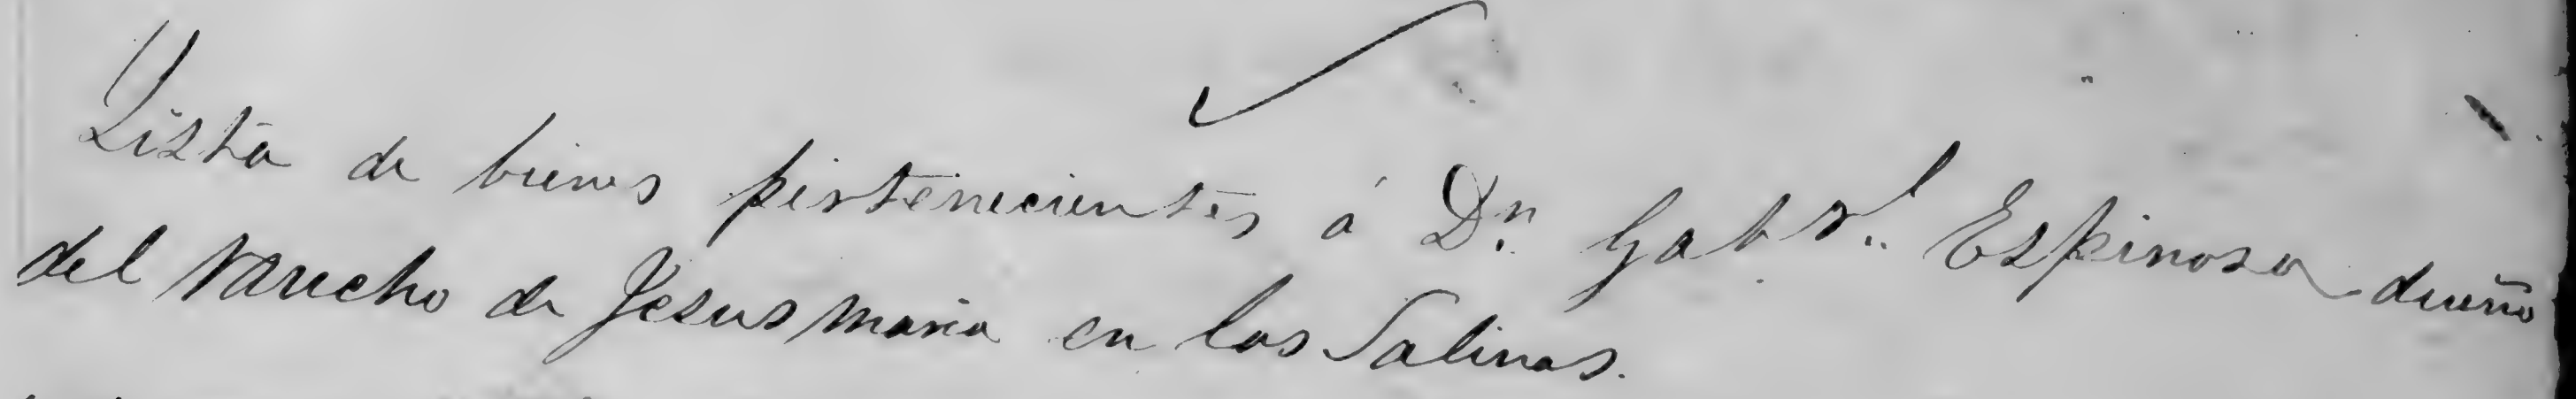 Lista de bienes pertenecientes á Dn. Gabrl. Espinosa dueño
del rancho de Jesus maria en las Salinas.